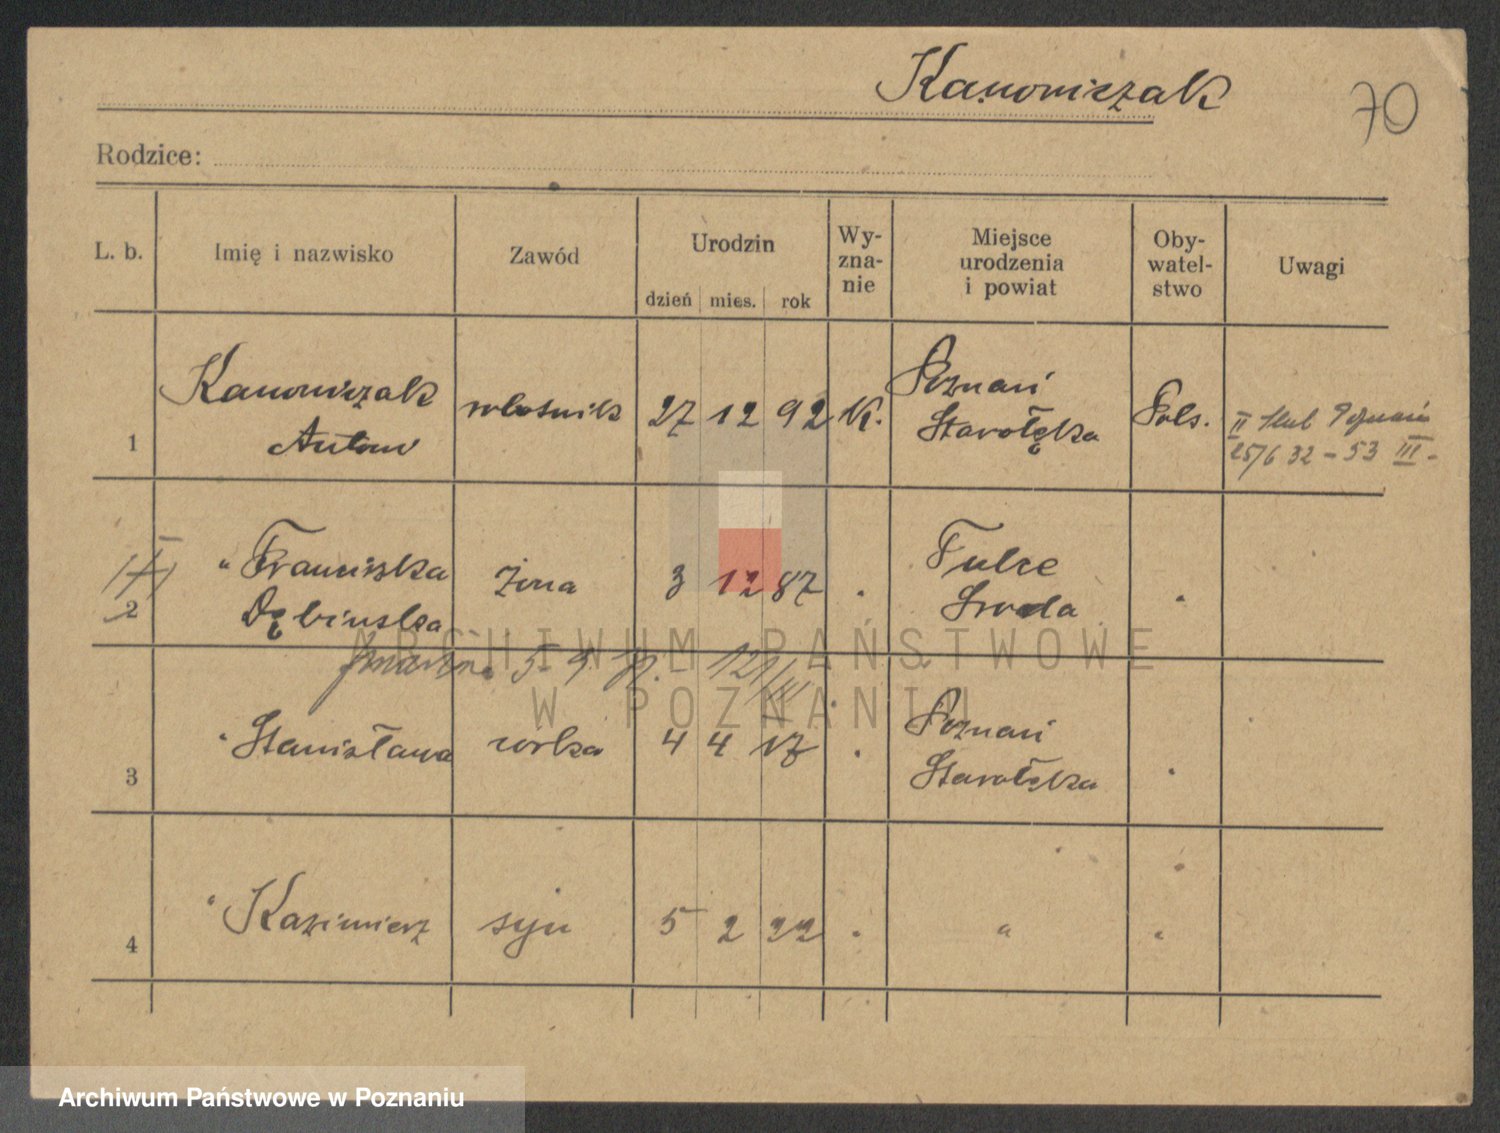 Kanoniczak
70
Rodzice:
L. b. Imię i nazwisko Zawód Urodzin dzień mies. rok Wy-zna-nie Miejsce urodzenia i powiat Oby-watel-stwo Uwagi
1 Kanoniczak Antoni rolnik 27 12 92 K. Poznań Starołęka Pols. II ślub Poznań
25/6 32 - 53 III -
2 " Franciszka Dębińska żona 3 12 87 Tulce Środa
zmarła 5-9
3 " Stanisława córka 4 4 17 Poznań Starołęka
4 " Kazimierz syn 5 2 22 " "
ARCHIWUM PAŃSTWOWE
W POZNANIU
Archiwum Państwowe w Poznaniu